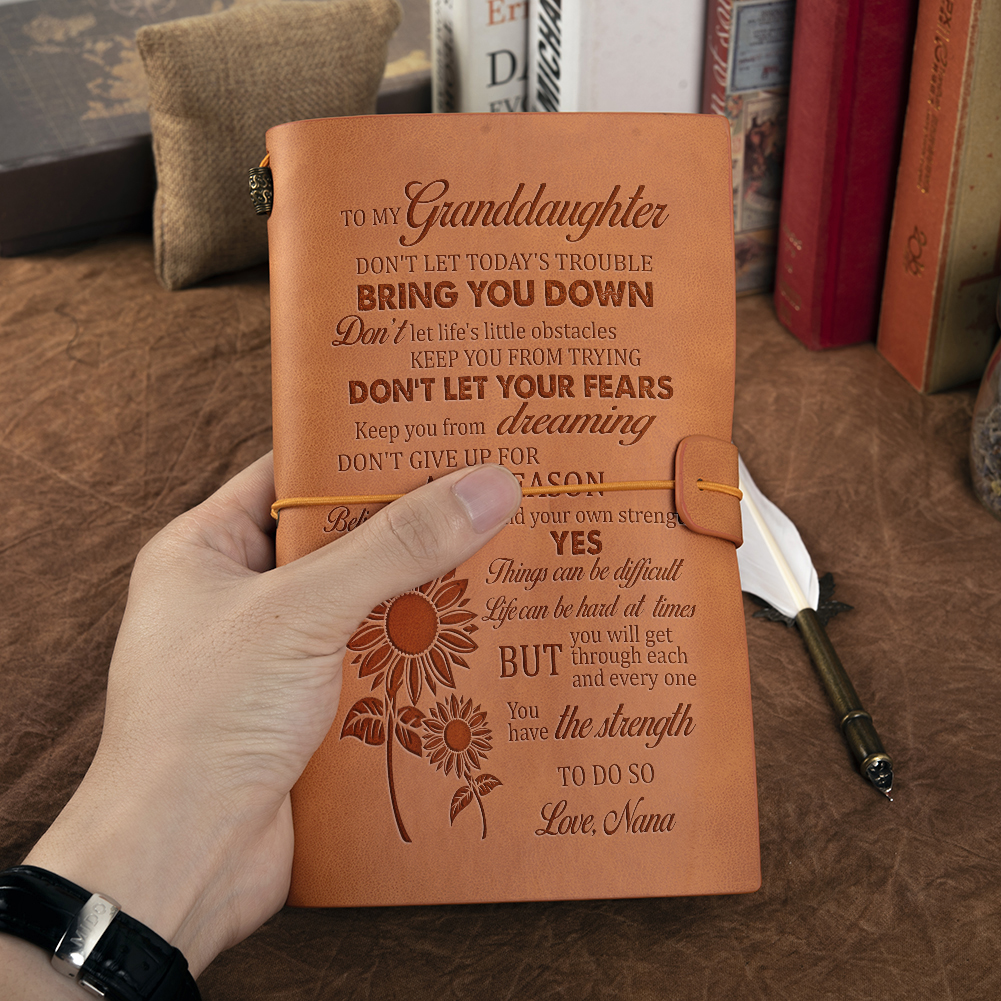 Er
DA
EVO
MICHA
TO MY Granddaughter
DON'T LET TODAY'S TROUBLE
BRING YOU DOWN
Don't let life's little obstacles
KEEP YOU FROM TRYING
DON'T LET YOUR FEARS
Keep you from dreaming
DON'T GIVE UP FOR
EASON
your own strenge
YES
Things can be difficult
Life can be hard at times
BUT you will get
through each
and every one
You
have the strength
TO DO SO
Love, Nana
MIDO